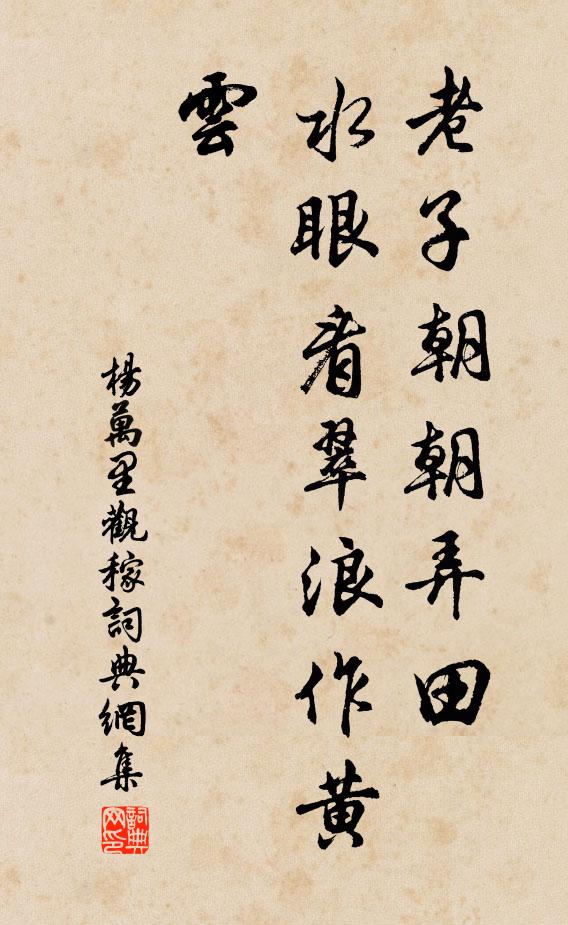 老子朝朝弄田
水眼看翠浪作黄
雲
楊萬里觀稼詞典網集
詞典
网印